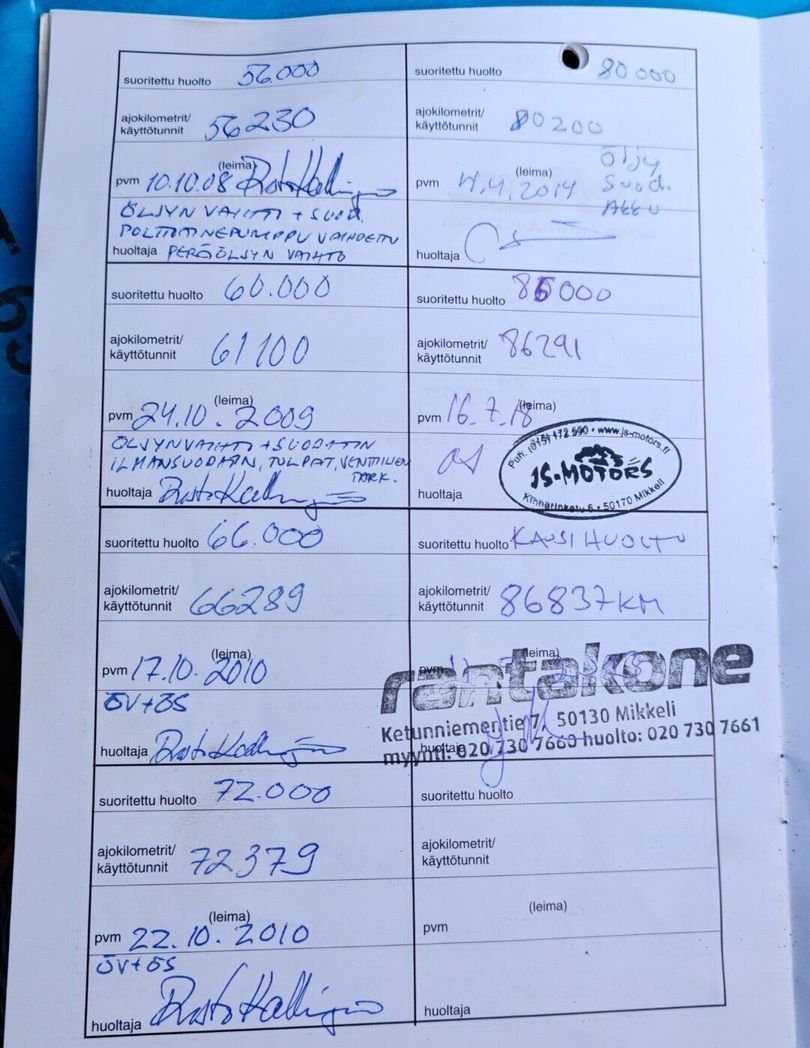 suoritettu huolto 56.000
ajokilometrit/
käyttötunnit 56230
(leima)
pvm 10.10.08
ÖLJYN VAIHTO + SUOD.
POLTTOAINEPUMPPU VAIHDETTU
huoltaja PERÄÖLJYN VAIHTO
suoritettu huolto 60.000
ajokilometrit/
käyttötunnit 61100
(leima)
pvm 24.10.2009
ÖLJYNVAIHTO + SUODATIN
ILMANSUODATIN, TULPAT, VENTTIILIEN
TARK.
huoltaja
suoritettu huolto 66.000
ajokilometrit/
käyttötunnit 66289
(leima)
pvm 17.10.2010
ÖV+ÖS
huoltaja
suoritettu huolto 72.000
ajokilometrit/
käyttötunnit 72379
(leima)
pvm 22.10.2010
ÖV+ÖS
huoltaja
suoritettu huolto 80000
ajokilometrit/
käyttötunnit 80200
(leima)
Öljy
Suod.
Akku
pvm 4.4.2014
huoltaja
suoritettu huolto 86000
ajokilometrit/
käyttötunnit 86291
(leima)
pvm 16.7.18
Puh. (015) 172 590 • www.js-motors.fi
JS-MOTORS
Kinnarinkatu 6 • 50170 Mikkeli
huoltaja
suoritettu huolto KAUSIHUOLTO
ajokilometrit/
käyttötunnit 86837KM
(leima)
pvm
rantakone
Ketunniementie 7, 50130 Mikkeli
myynti: 020 730 7660 huolto: 020 730 7661
huoltaja
suoritettu huolto
ajokilometrit/
käyttötunnit
(leima)
pvm
huoltaja